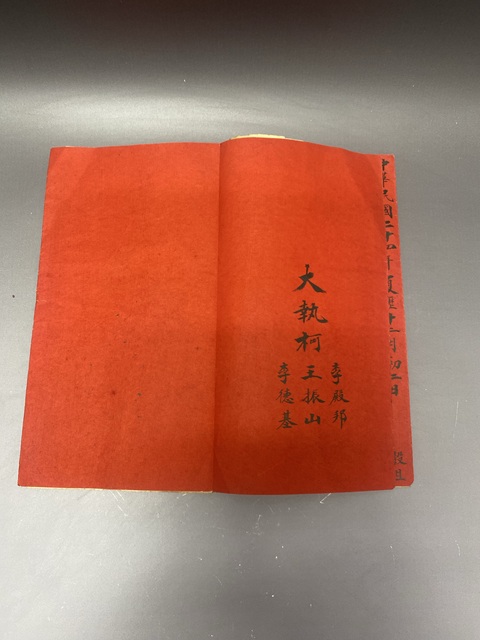 中華民國二十四年夏歷十二月初二日
投
大執柯
李殿邦
王振山
李德基